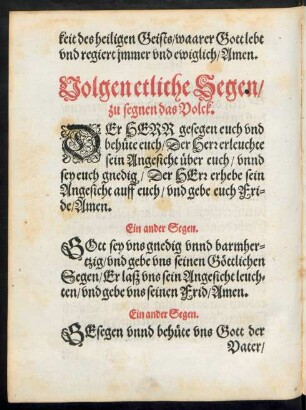 keit des heiligen Geists/waarer Gott lebt
vnd regiert jmmer vnd ewiglich/Amen.
Volgen etliche Segen/
zu segnen das Volck.
DEr HERR gesegen euch vnd
behüte euch/Der Herr erleuchte
sein Angesicht über euch/vnnd
sey euch gnedig/Der HErr erhebe sein
Angesicht auff euch/vnd gebe euch Fri-
de/Amen.
Ein ander Segen.
GOtt sey vns gnedig vnnd barmher-
tzig/vnd gebe vns seinen Göttlichen
Segen/Er laß vns sein Angesicht leuch-
ten/vnd gebe vns seinen Frid/Amen.
Ein ander Segen.
GEsegen vnnd behüte vns Gott der
Vater/